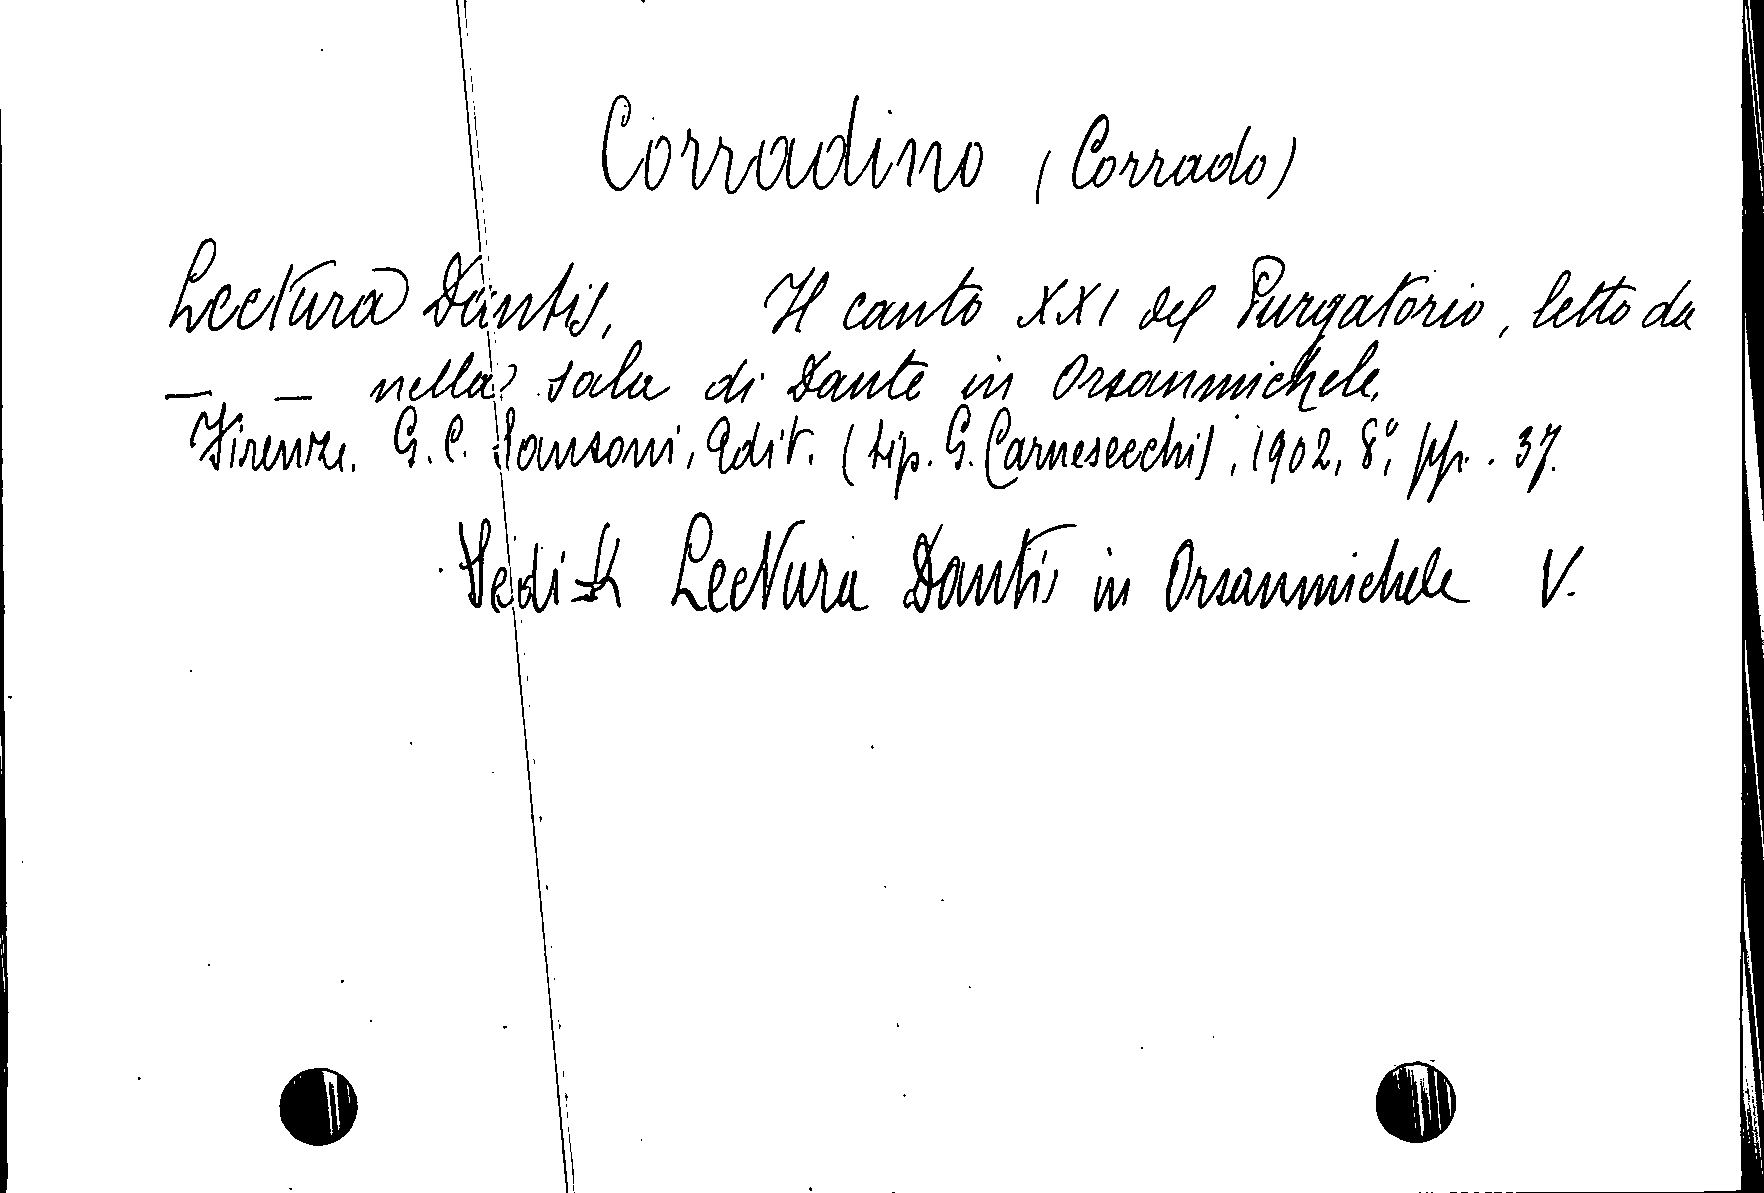 Corradino (Corrado)
Lectura Dantis. Il canto XXI del Purgatorio, letto da
— — nella sala di Dante in Orsanmichele.
Firenze. G. C. Sansoni, Edit. (tip. G. Carnesecchi), 1902, 8°, pp. 37.
Vedi Lectura Dantis in Orsanmichele V.